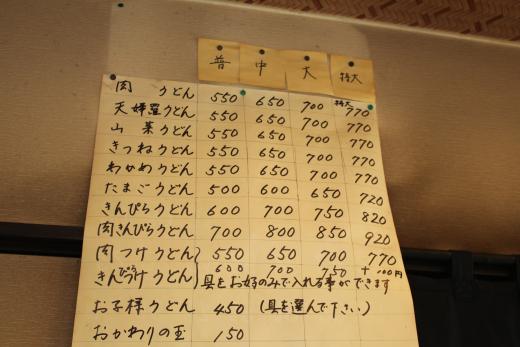 普 中 大 特大
肉 うどん 550 650 700 特大 770
天婦羅うどん 550 650 700 770
山菜うどん 550 650 700 770
きつねうどん 550 650 700 770
わかめうどん 550 650 700 770
たまごうどん 500 600 650 720
きんぴらうどん 600 700 750 820
肉きんぴらうどん 700 800 850 920
肉つけうどん 550 650 700 770
きんぴらつけうどん 600 700 750 +100円
具をお好のみで入れる事ができます
お子様うどん 450 (具を選んで下さい)
おかわりの玉 150